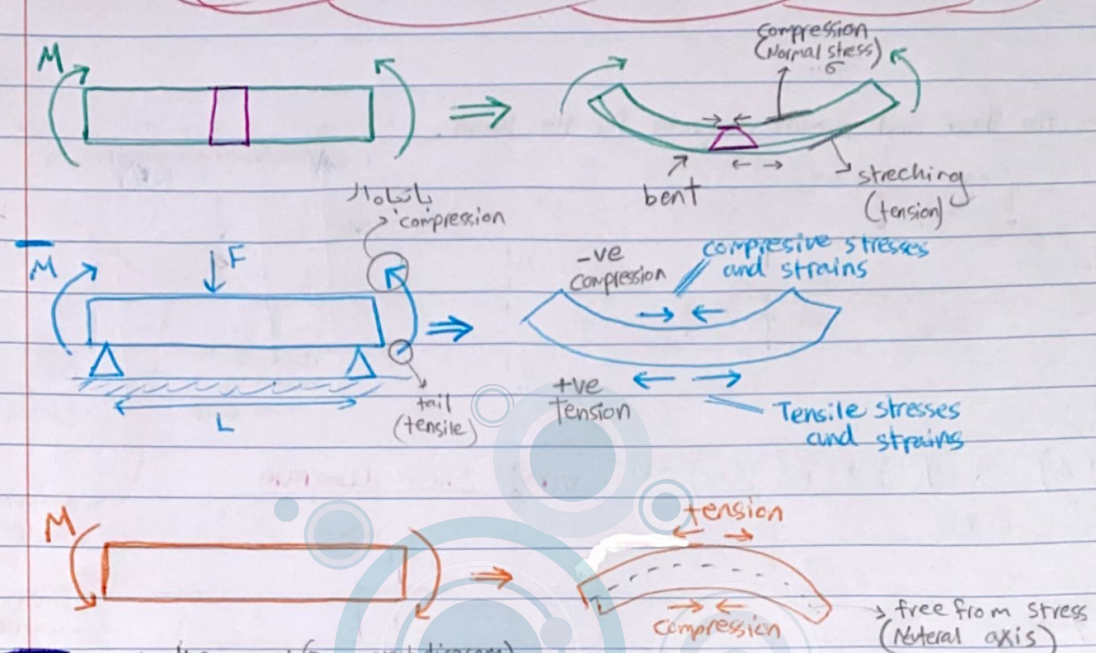 M
compression
(Normal stress)
σ
bent
streching
(tension)
compression
M
F
-ve
compression
compresive stresses
and strains
L
tail
(tensile)
+ve
Tension
Tensile stresses
and strains
M
tension
compression
free from stress
(Nuteral axis)